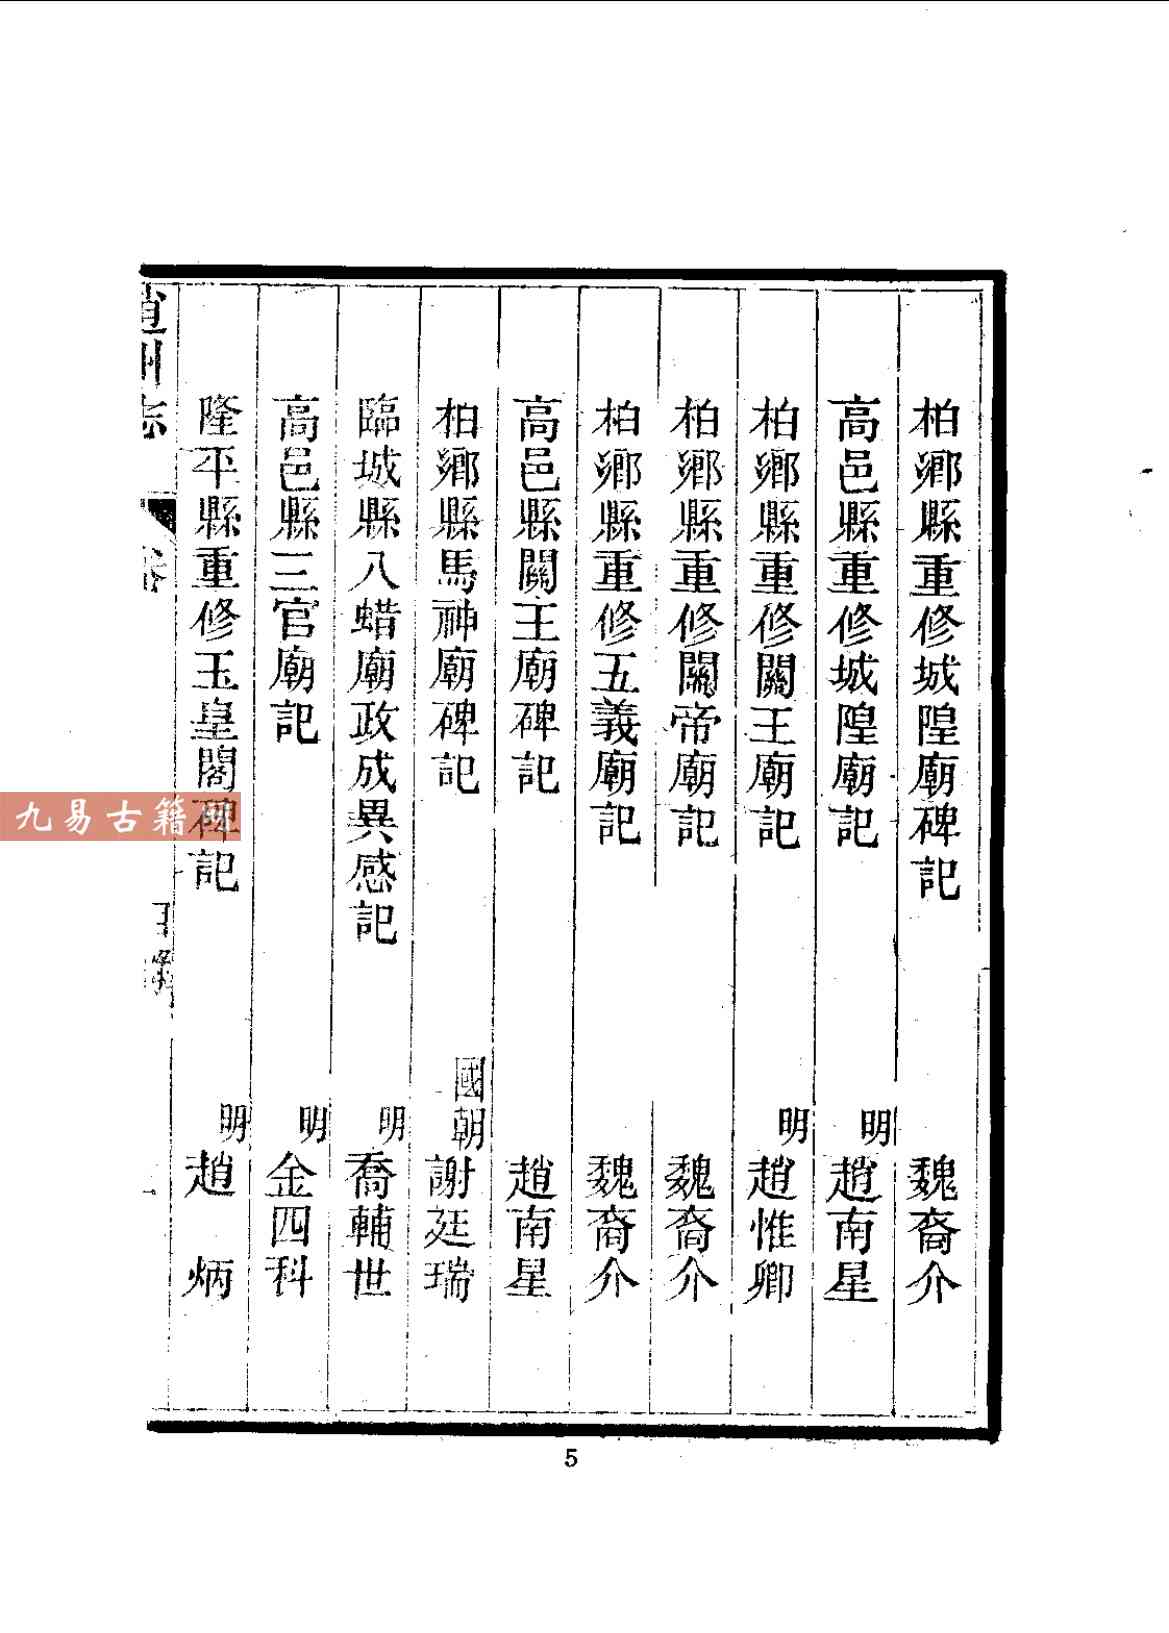 柏鄉縣重修城隍廟碑記 魏裔介
高邑縣重修城隍廟記 明 趙南星
柏鄉縣重修關王廟記 明 趙惟卿
柏鄉縣重修關帝廟記 魏裔介
柏鄉縣重修五義廟記 魏裔介
高邑縣關王廟碑記 趙南星
柏鄉縣馬神廟碑記 國朝 謝廷瑞
臨城縣八蜡廟政成異感記 明 喬輔世
高邑縣三官廟記 明 金四科
隆平縣重修玉皇閣碑記 明 趙炳
趙州志
九易古籍网
5